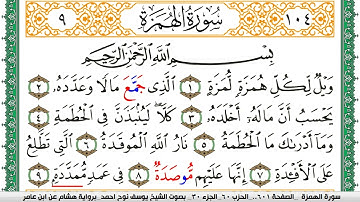 ١٠٤ سُورَةُ الهُمَزَةِ ٩
بِسْمِ ٱللَّهِ ٱلرَّحْمَٰنِ ٱلرَّحِيمِ
وَيْلٌ لِّكُلِّ هُمَزَةٍ لُّمَزَةٍ ١ ٱلَّذِى جَمَّعَ مَالًا وَعَدَّدَهُۥ ٢
يَحْسَبُ أَنَّ مَالَهُۥٓ أَخْلَدَهُۥ ٣ كَلَّا لَيُنۢبَذَنَّ فِى ٱلْحُطَمَةِ ٤
وَمَآ أَدْرَىٰكَ مَا ٱلْحُطَمَةُ ٥ نَارُ ٱللَّهِ ٱلْمُوقَدَةُ ٦ ٱلَّتِى تَطَّلِعُ
عَلَى ٱلْأَفْـِٔدَةِ ٧ إِنَّهَا عَلَيْهِم مُّوصَدَةٌ ٨ فِى عَمَدٍ مُّمَدَّدَةٍ ٩
سورة الهمزة .. الصفحة ٦٠١.. الحزب ٦٠ الجزء ٣٠ بصوت الشيخ يوسف نوح احمد برواية هشام عن ابن عامر